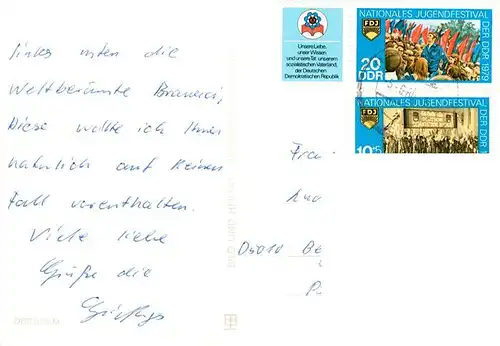 links unten die
Weltberühmte Brauerei,
Diese wollte ich Ihnen
natürlich auf keinen
Fall vorenthalten.
Viele liebe
Grüße die
Unsere Liebe,
unser Wissen
und unsere Tat unserem
sozialistischen Vaterland,
der Deutschen
Demokratischen Republik
NATIONALES JUGENDFESTIVAL
DER DDR 1979
FDJ
20
DDR
NATIONALES JUGENDFESTIVAL
DER DDR 1
FDJ
10+5
Frau
D-5010 Be